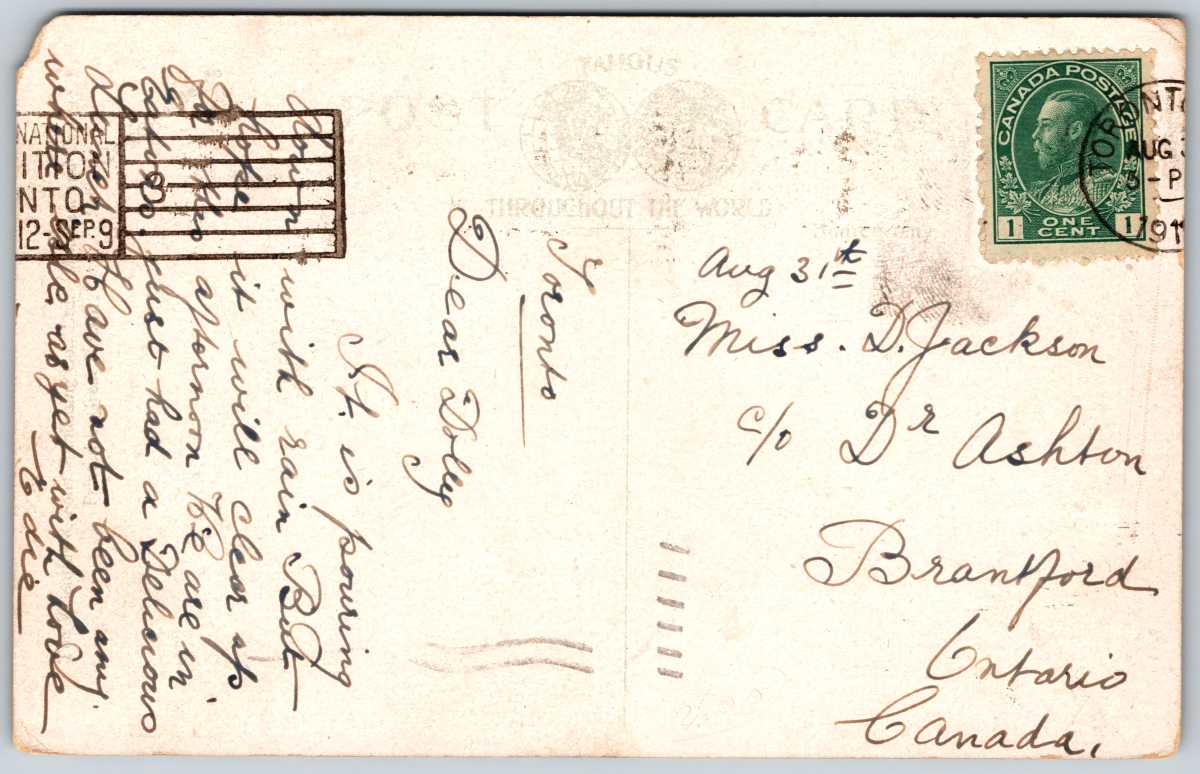 FAMOUS
POST CARD
THROUGHOUT THE WORLD
CANADA POSTAGE
1 ONE CENT 1
TORONTO
AUG 3
3 - P
191
NATIONAL
ITION
NTO
12-SEP.9
Toronto
Dear Dolly
It is pouring
down with rain But
hope it will clear up
this afternoon We are in
Eatons. just had a Delicious
Lunch Have not been any
where else as yet with Love
Aug 31st
Miss. D. Jackson
c/o Dr Ashton
Brantford
Ontario
Canada,